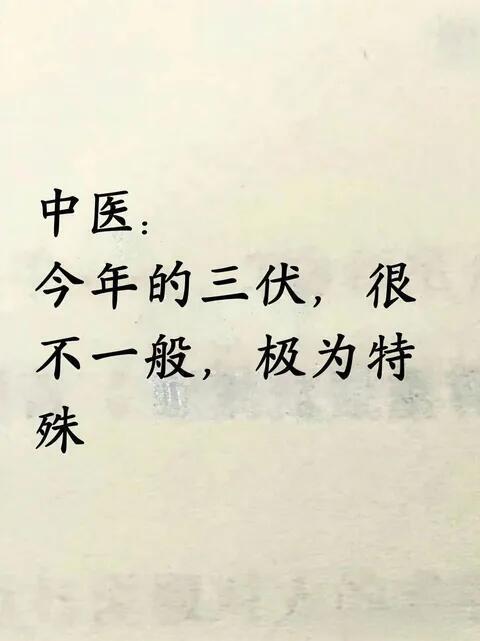 中医：
今年的三伏，很
不一般，极为特
殊